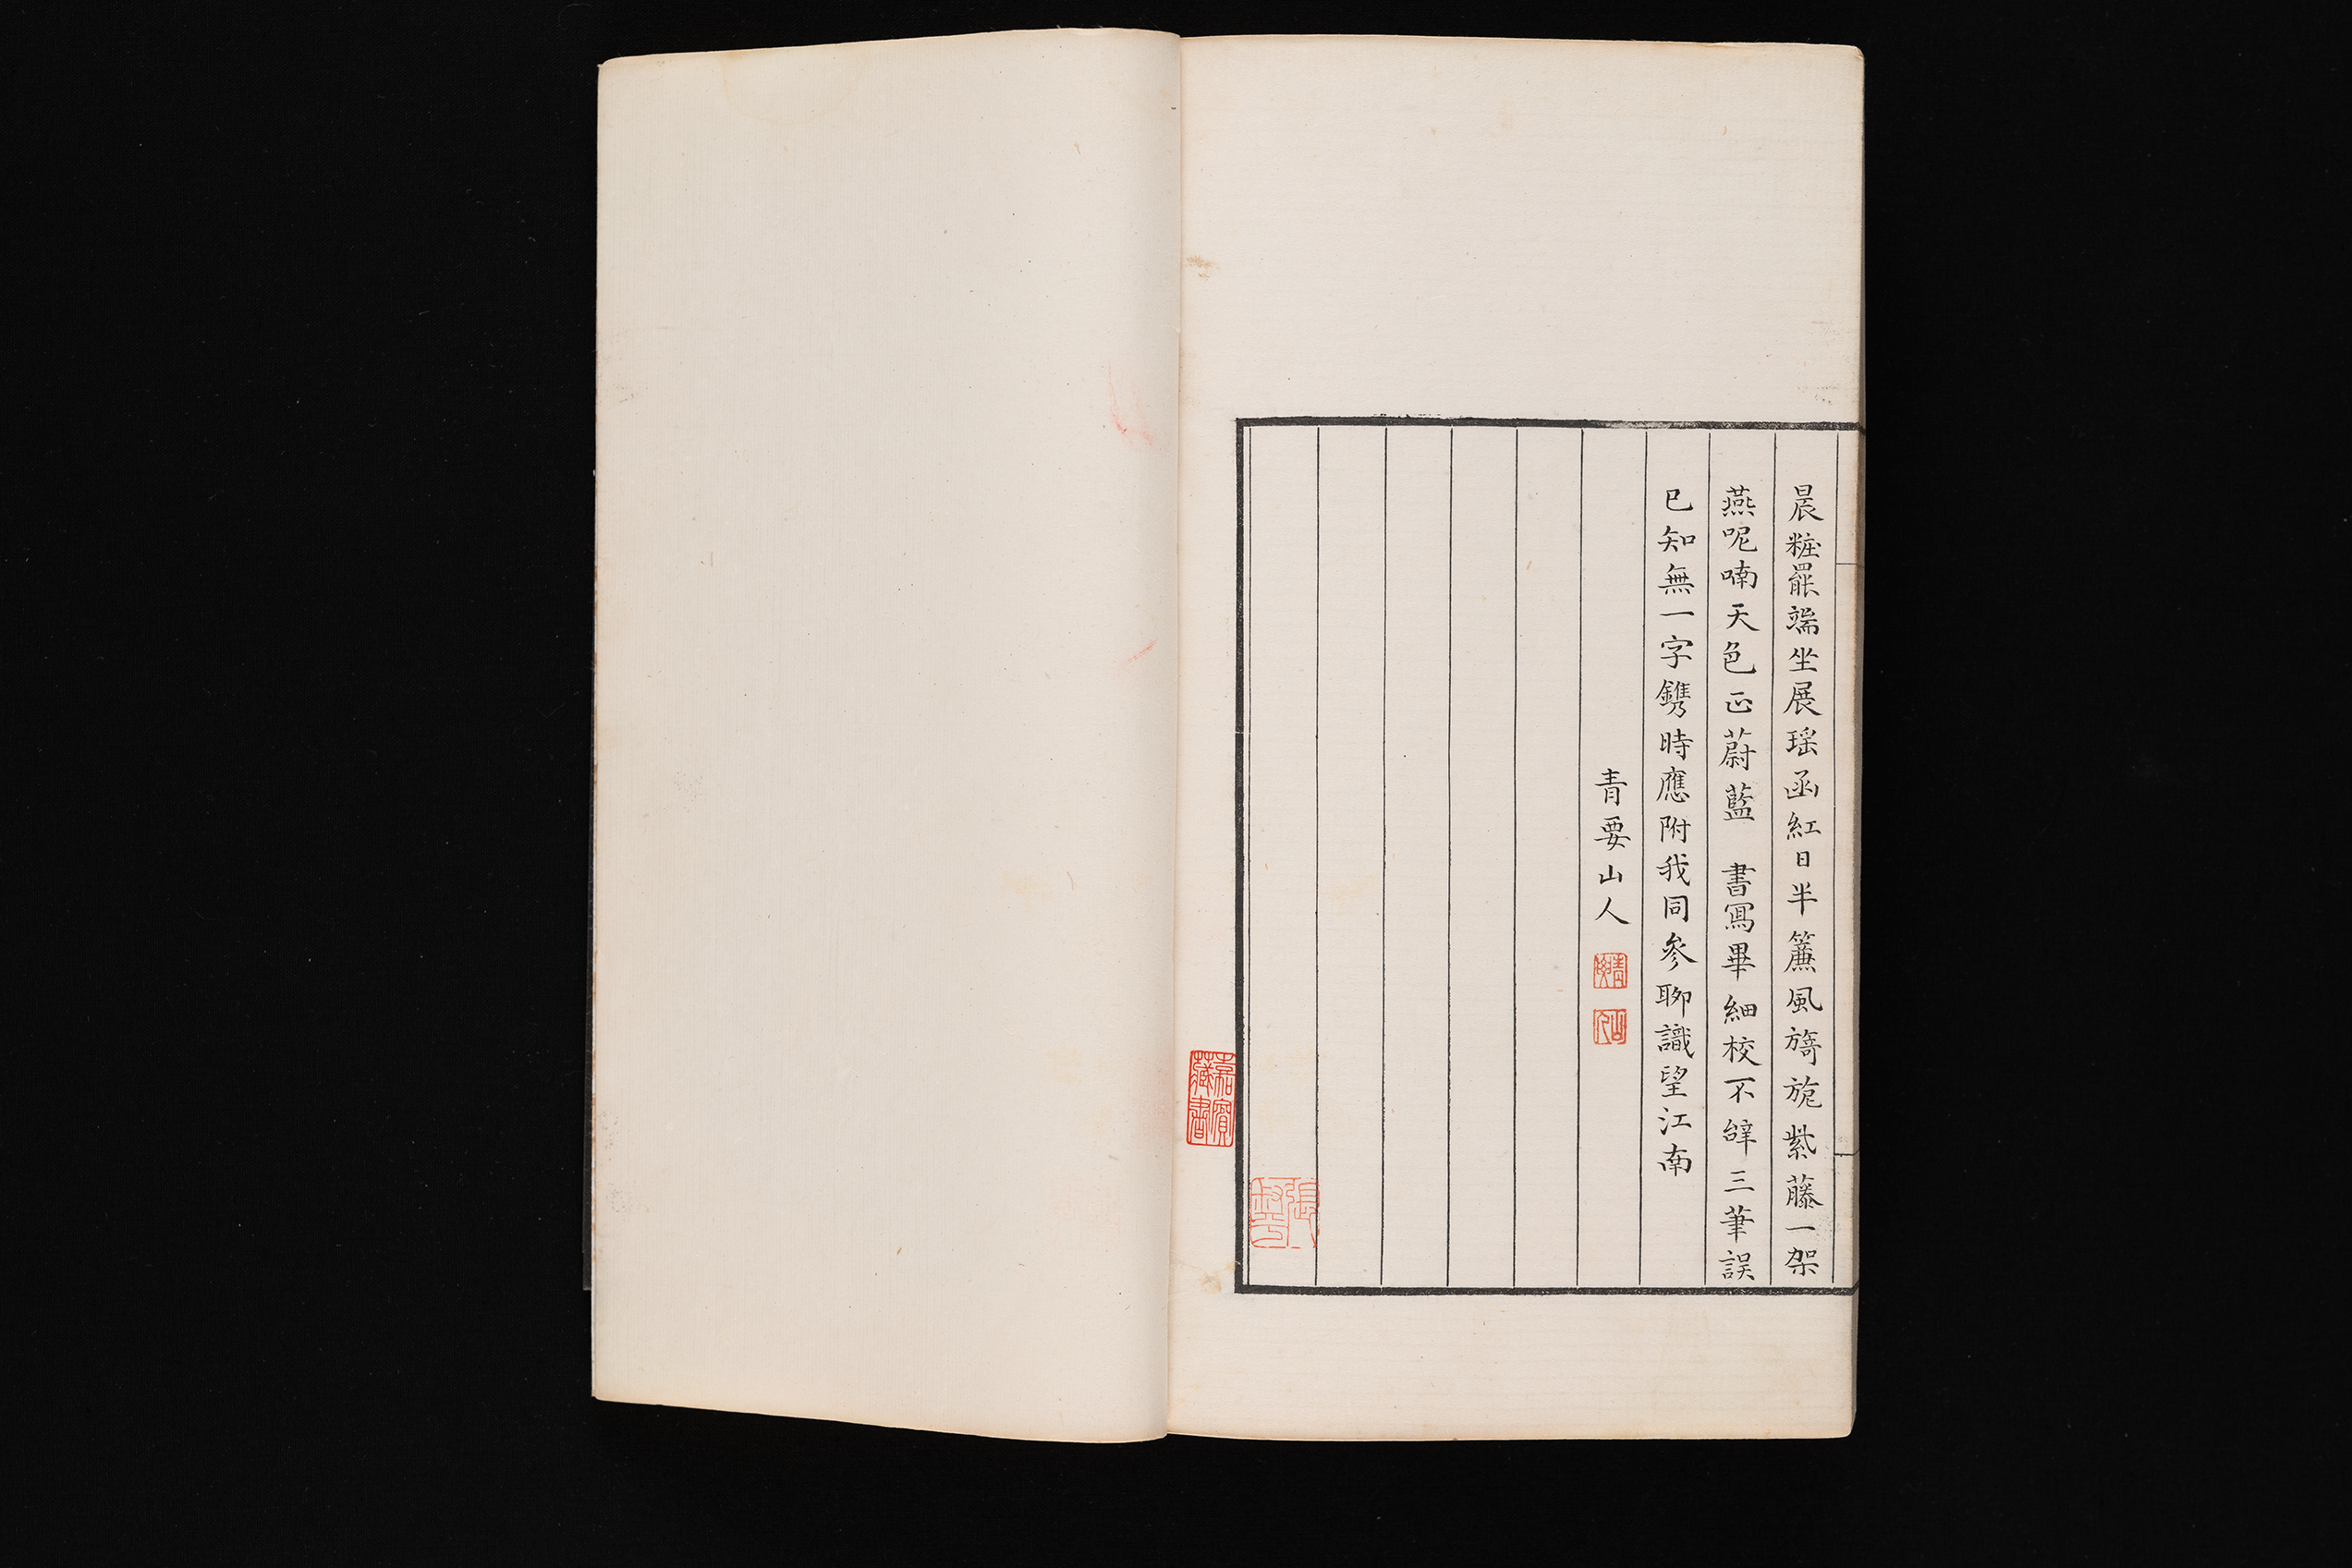 晨粧罷端坐展瑶函紅日半簾風旖旎紫藤一架
燕呢喃天色正蔚藍　書寫畢細校不辭三筆誤
已知無一字鐫時應附我同參聊識望江南
青要山人
青要
山人
嘉賓藏書